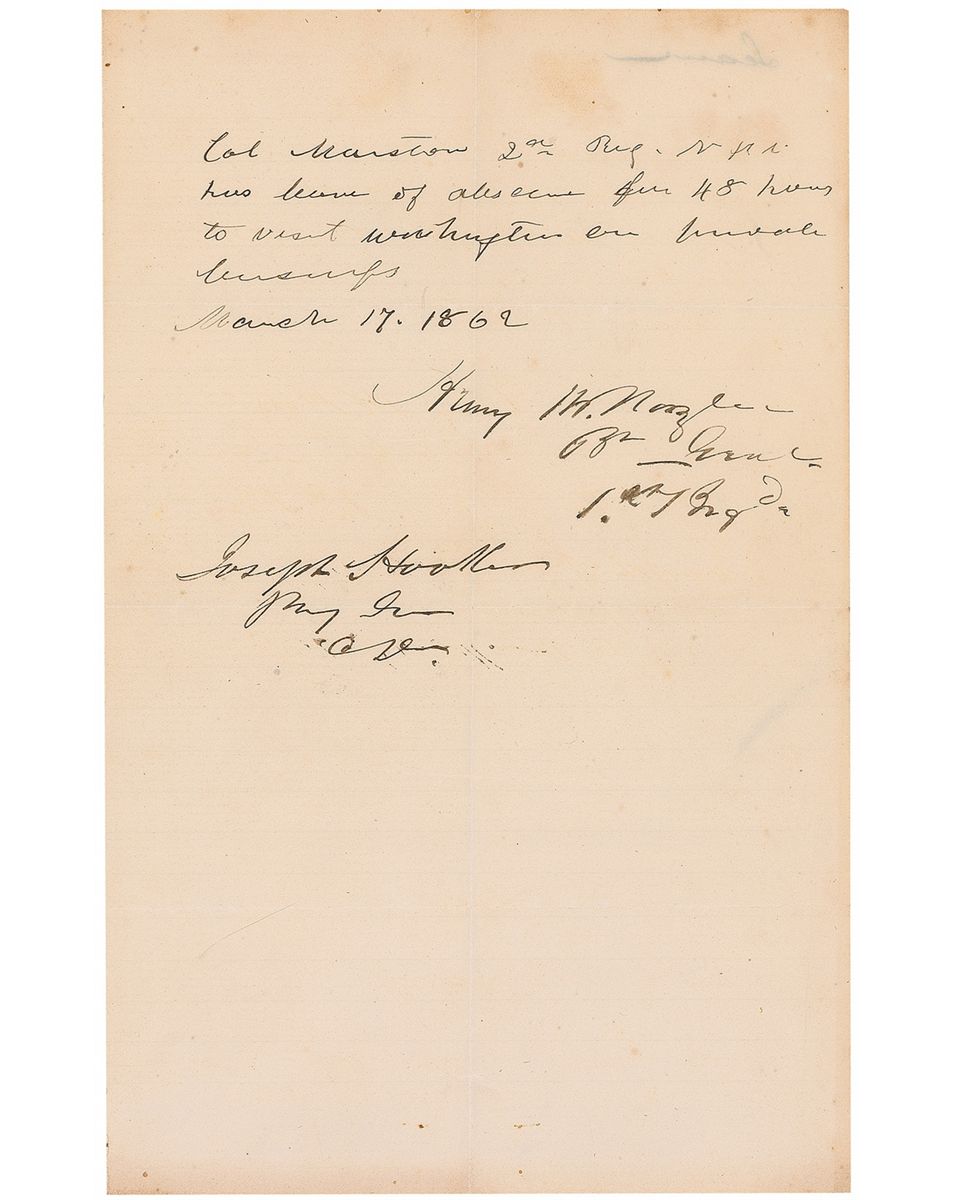 Col Marston 2nd Reg. N H V.
has leave of absence for 48 hours
to visit Washington on private
business
March 17. 1862
Henry M. Naglee
Br Genl.
1.st Brigd
Joseph Hooker
Brig Gen